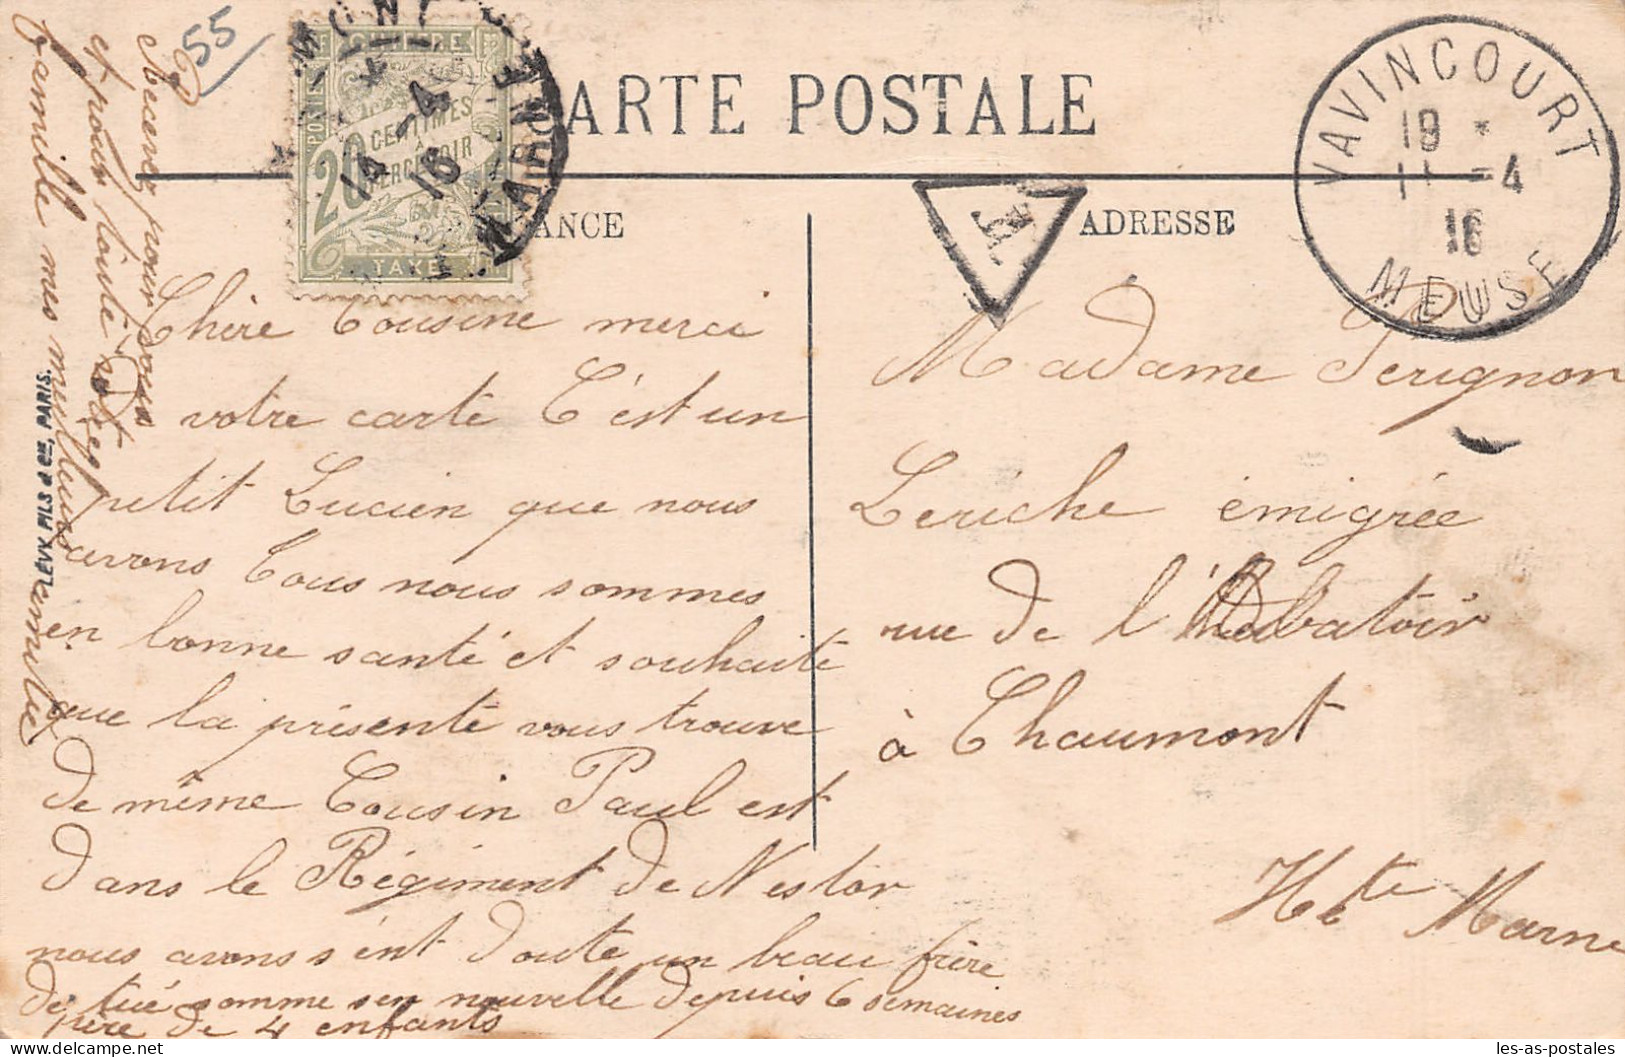 55
CARTE POSTALE
CHIFFRE
20
CENTIMES
À
PERCEVOIR
TAXE
MARNE
14 -4
16
VAVINCOURT
18 *
11 -4
16
MEUSE
T
ANCE
ADRESSE
Chère Cousine merci
votre carte C'est un
petit Lucien que nous
avons Tous nous sommes
en bonne santé et souhaite
que la présente vous trouve
de même Cousin Paul est
dans le Régiment de Nestor
nous avons s'ent doute un beau frère
de tué somme sen nouvelle depuis 6 semaines
père de 4 enfants
Recevez pour vous
et pour toute votre
famille mes meilleurs
amitié
LÉVY FILS & Cie, PARIS.
Madame Perignon
Leriche émigrée
rue de l'Abatoir
à Chaumont
Hte Marne
les-as-postales.com